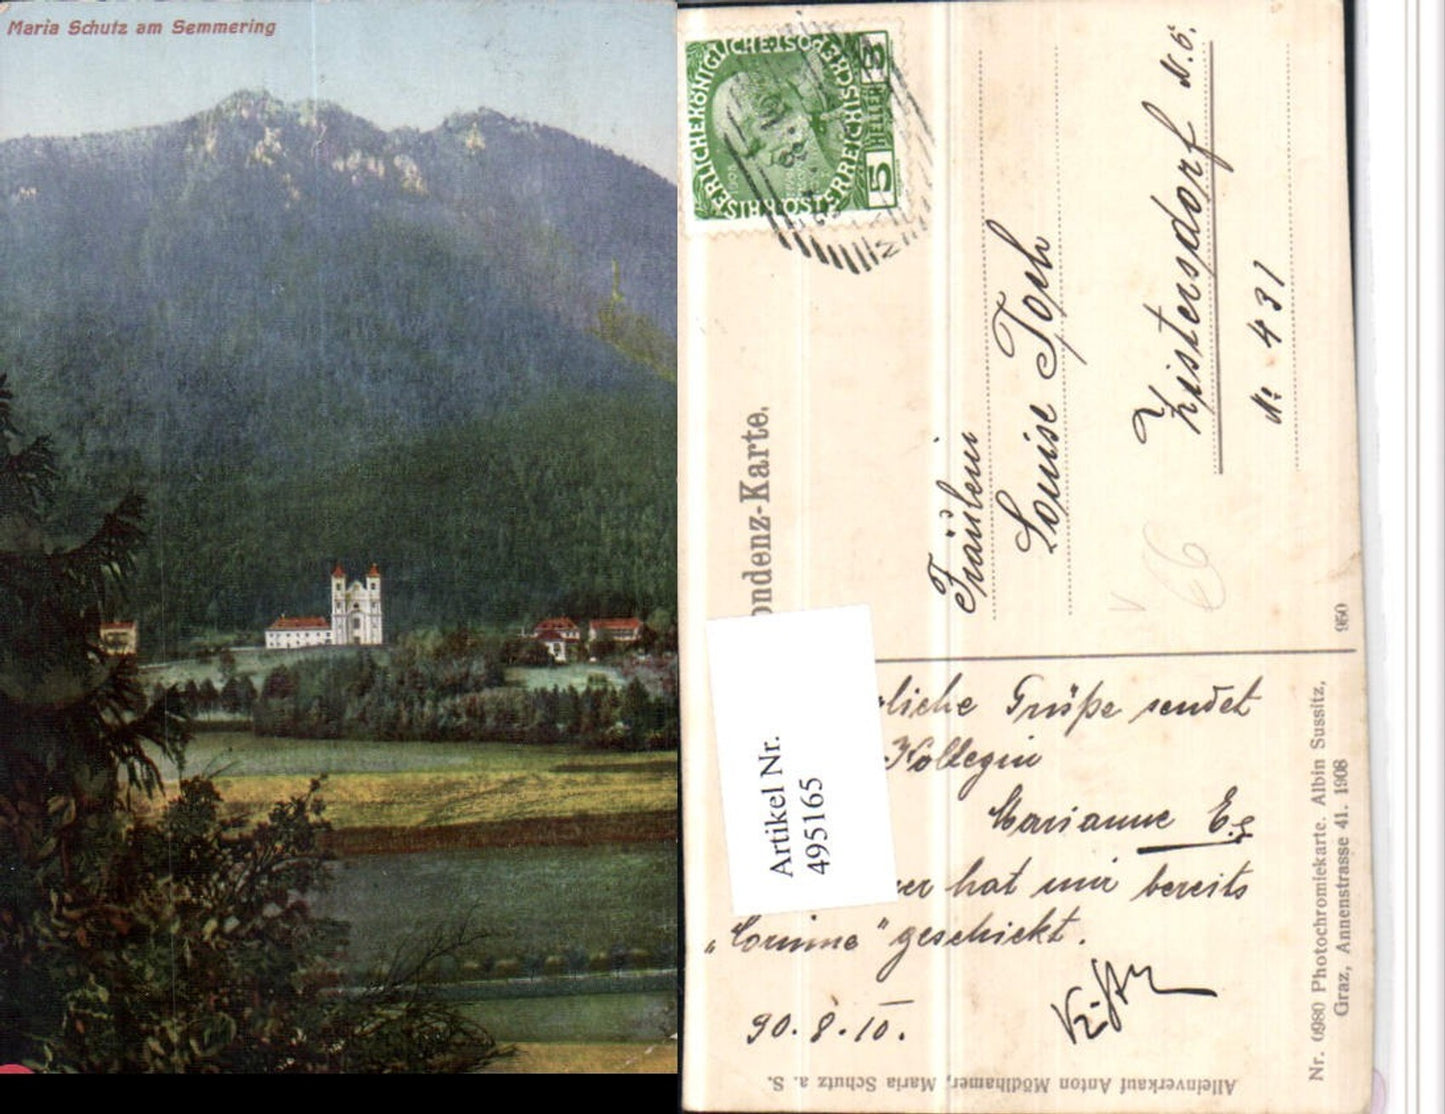 Maria Schutz am Semmering
KAISERLICHEKÖNIGLICHE POST
ÖSTERREICHISCHE
5 HELLER
ondenz-Karte.
Fräulein
Louise Toph
Zistersdorf N. Ö.
No 431
66
rliche Grüße sendet
Kollegin
Marianne E.
er hat mir bereits
„Corinne" geschickt.
8. 10.
Artikel Nr.
495165
950
Nr. 6980 Photochromiekarte. Albin Sussitz,
Graz, Annenstrasse 41. 1908
Alleinverkauf Anton Mödlhamer, Maria Schutz a. S.